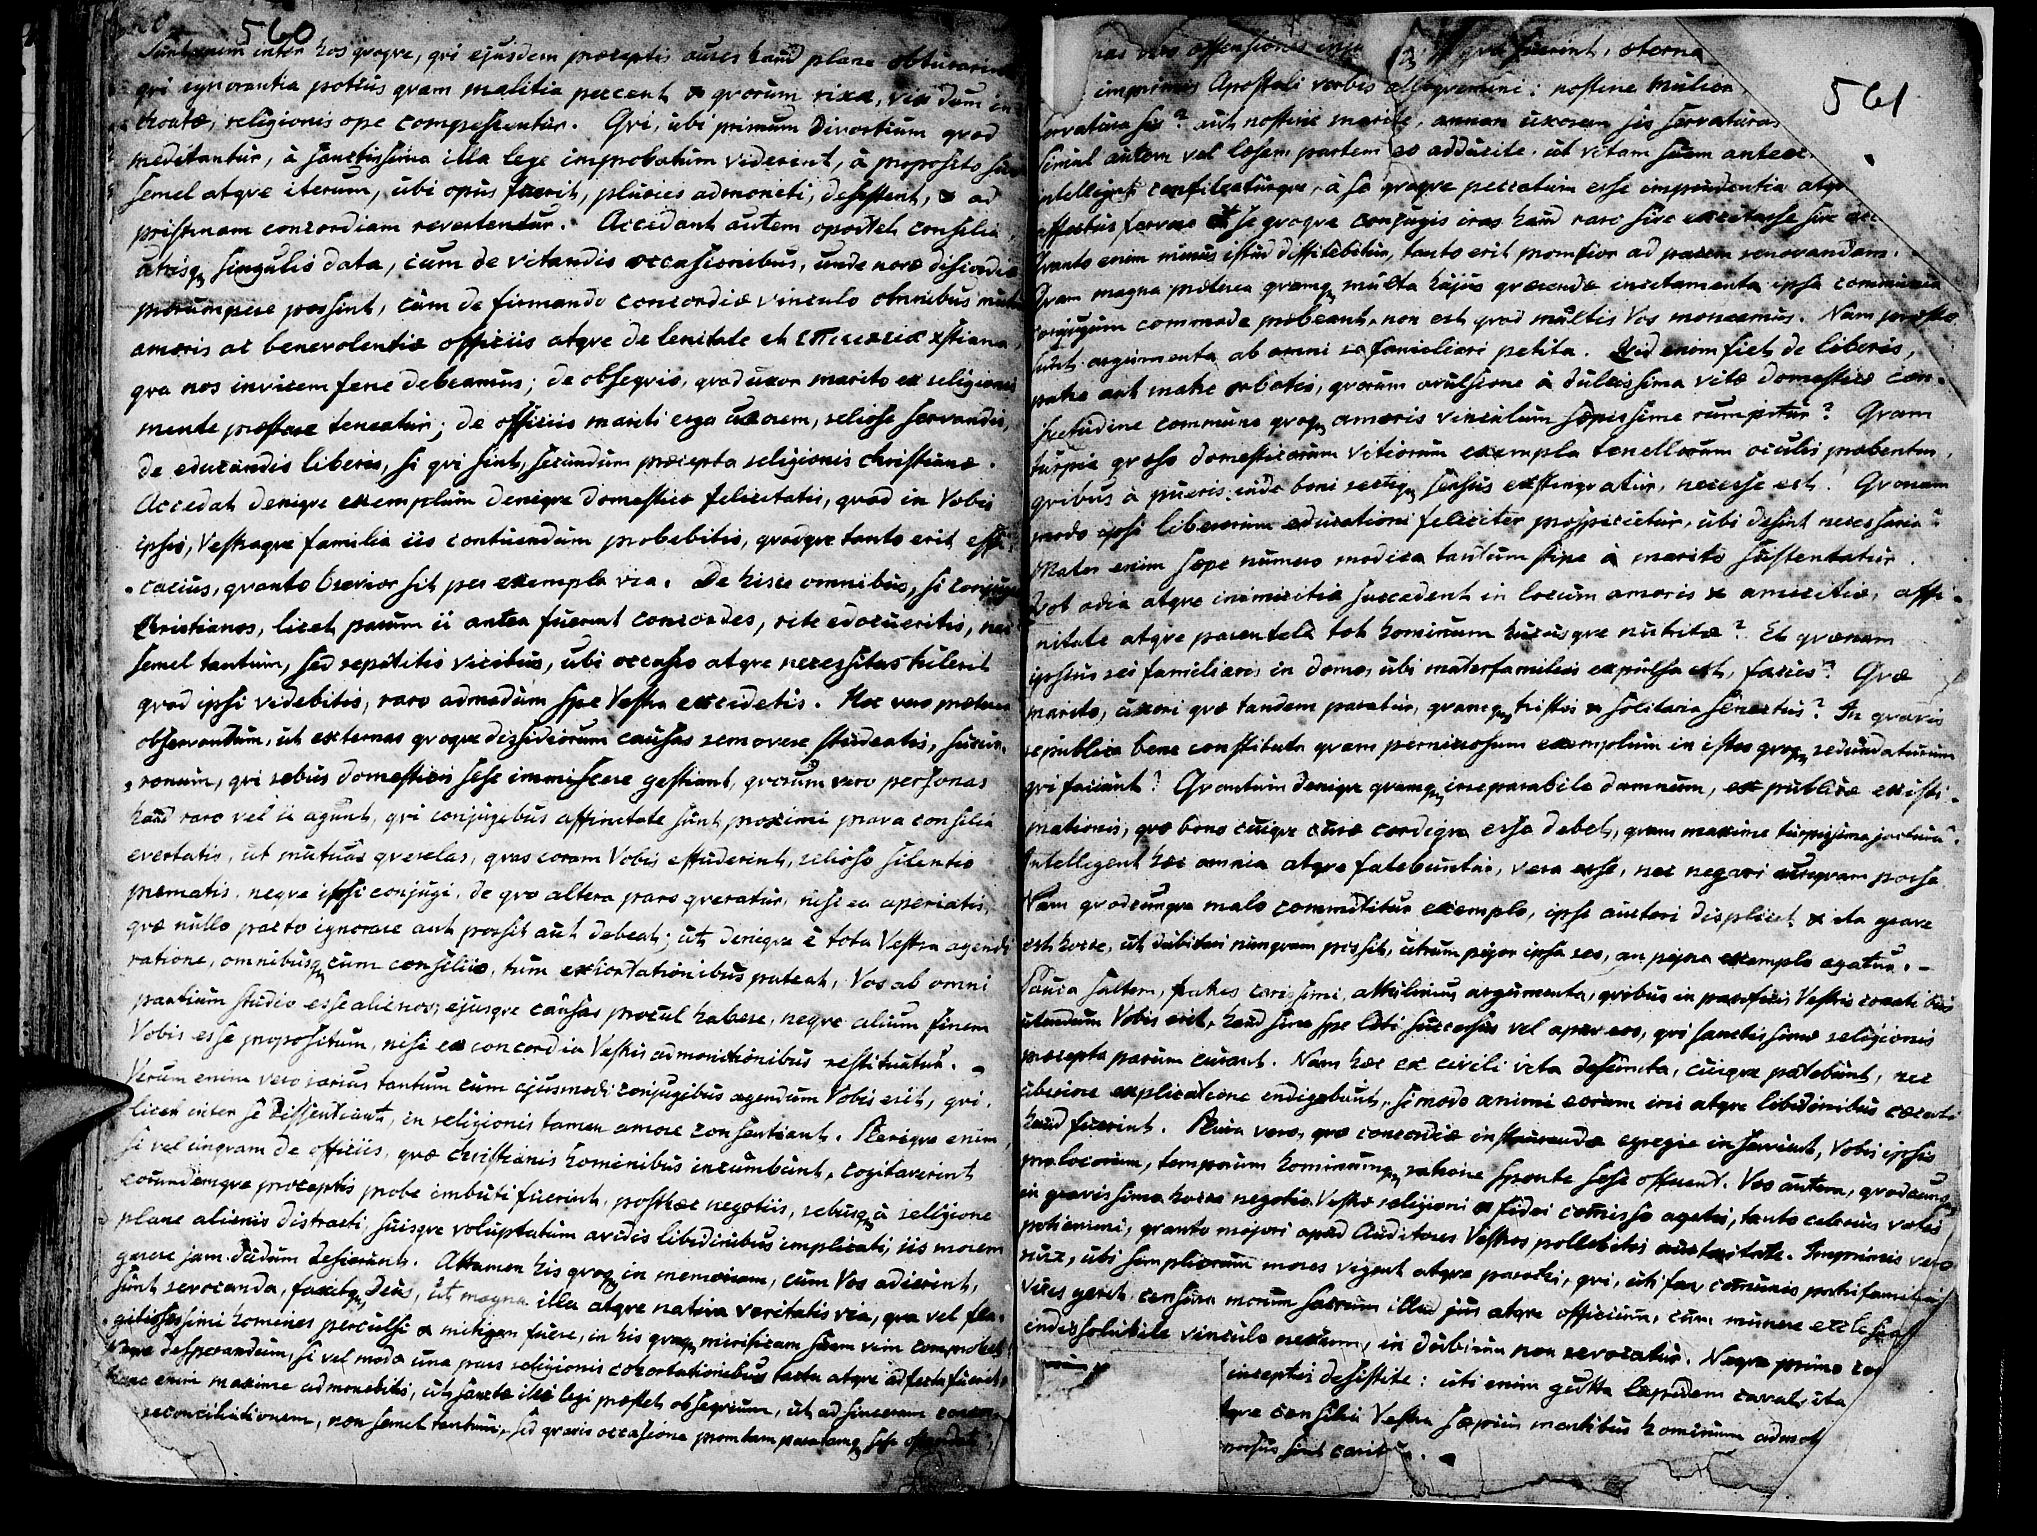 560
Sunt enim inter hos qvoqve, qvi ejusdem præceptis aures haud plane obturarint
qvi ignorantia potius qvam malitia peccent & qvorum rixæ, vix dum in-
choatæ, religionis ope compescentur. Qvi, ubi primum divortium qvod
meditantur, à sanctissima illa lege improbatum viderint, à proposito suo
semel atqve iterum, ubi opus fuerit, pluries admoniti, desistent, & ad
pristinam concordiam revertentur. Accedant autem oportet consilia,
utrisqve singulis data, cum de vitandis occasionibus, unde novæ discordiæ
prorumpere possint, cum de firmando concordiæ vinculo omnibus mutui
amoris ac benevolentiæ officiis atqve de lenitate et επιεικεια xstiana,
qva nos invicem ferre debeamus; de obseqvio, qvod uxor marito ex religionis
mente præstare teneatur; de officiis mariti erga uxorem, religiose servandis,
de educandis liberis, si qvi sint, secundum præcepta religionis christianæ.
Accedat deniqve exemplum deniqve domesticæ felicitatis, qvod in Vobis
ipsis, Vestraqve familia iis contuendum præbebitis, qvodqve tanto erit effi-
cacius, qvanto brevior sit per exempla via. De hisce omnibus, si conjuges
Christianos, licet parum ii antea fuerint concordes, rite edocueritis, nec
semel tantum, sed repetitis vicibus, ubi occasio atqve necessitas tulerit
qvod ipsi videbitis, raro admodum spe Vestra excidetis. Hoc vero præterea
observandum, ut externas qvoqve dissidiorum causas removere studeatis, susur-
ronum, qvi rebus domesticis sese immiscere gestiant, qvorum vero personas
haud raro vel ii agunt, qvi conjugibus affinitate sunt proximi prava consilia
evertatis, ut mutuas qverelas, qvas coram Vobis effuderint, religioso silentio
prematis, neqve ipsi conjugi, de qvo altera pars qveratur, nisi ea aperiatis,
qvæ nullo pacto ignorare aut possit aut debeat; ut deniqve è tota Vestra agendi
ratione, omnibusqve cum consiliis, tum exhortationibus pateat, Vos ab omni
partium studio esse alienos, ejusqve causas procul habere, neqve alium finem
Vobis esse propositum, nisi ex concordia Vestris admonitionibus restituatur.
Verum enim vero rarius tantum cum ejusmodi conjugibus agendum Vobis erit, qvi,
licet inter se dissentiant, in religionis tamen amore consentiant. Pleriqve enim,
si vel unqvam de officiis, qvæ christianis hominibus incumbunt, cogitaverint
eorundemqve præceptis probe imbuti fuerint, posthæc negotiis, rebusqve à religione
plane alienis distracti, suisqve voluptatum avidis libidinibus implicati, iis morem
gerere jam dudum desierunt. Attamen his qvoqve in memoriam, cum Vos adierint,
sunt revocanda, faxitqve Deus, ut magna illa atqve nativa veritatis vis, qva vel fla-
gitiosissimi homines perculsi & mitigati fuere, in his qvoqve mirificam suam vim comprobet!
Neqve desperandum, si vel modo una pars religionis cohortationibus tacta atqve adfecta fuerit,
Hanc enim maxime admonebitis, ut sanctæ illi legi præstet obseqvium, ut ad sinceram
reconciliationem, non semel tantum, sed qvavis occasione promtam paratamqve sese ostendat,
561
has vero offensiones qvæ fuerint, æterna
imprimis Apostoli verbis alloqvemini: nostine mulier,
servatura sis? aut nostine marite, annon uxorem sis servaturus
Simul autem vel læsam partem eo adducite, ut vitam suam anteac-
intelligat confiteaturqve, à se qvoqve peccatum esse imprudentia atqve
affectus fervore & se qvoqve conjugis iras haud raro sive excitasse sive
Qvanto enim minus istud diffitebitur, tanto erit promtior ad pacem renovandam.
Qvam magna præterea qvamqve multa hujus gratiæ incitamenta ipsa communia
conjugum commoda præbeant, non est qvod multis Vos moneamus. Nam præsto
sunt argumenta ab omni re familiari petita. Qvid enim fiet de liberis,
patre aut matre orbatis, qvorum avulsione à dulcissima vitæ domesticæ con-
svetudine commune qvoqve amoris vinculum sæpissime rumpitur? Qvam
turpia qvæso domesticorum vitiorum exempla tenellorum oculis præbentur,
qvibus à pueris inde boni rectiqve sensus exstingvatur, necesse est! Qvonam
modo ipsi liberorum educationi feliciter prospicietur, ubi desint necessaria?
Mater enim sæpe numero modica tantum stipe à marito sustentatur.
Qvot odia atqve inimicitiæ succedent in locum amoris & amicitiæ, affi-
nitate atqve parentela tot hominum hucusqve nutritæ? Et qvænam
ipsius rei familiaris in domo, ubi materfamilias expulsa est, facies? Qvæ
marito, uxori qvæ tandem paratur, qvamqve tristis & solitaria senectus? In qvavis
republica bene constituta qvam perniciosum exemplum in istos qvoqve redundaturum
qvi faciunt? Qvantum deniqve qvamqve irreparabile damnum, ex publicæ existi-
mationis, qvæ bono cuiqve curæ cordiqve esse debet, qvam maxime turpissima jactura!
Intelligent hæc omnia atqve fatebuntur, vera esse, nec negari unqvam posse.
Nam qvodcunqve malo committitur exemplo, ipsi auctori displicet & ita grave
est hocce, ut dubitari nunqvam possit, utrum pejor ipsa res, an pejora exempla agatur. –
Pauca saltem, fratres carissimi, attulimus argumenta, qvibus in pacificis Vestris conatibus
utendum Vobis erit, haud sine spe læti successus vel apud eos, qvi sanctissimæ religionis
præcepta parum curant. Nam hæc ex civili vita desumta, cuiqve patebunt, nec
uberiore explicatione indigebunt, si modo animi eorum ira atqve libidinibus coecati
haud fuerint. Plura vero, qvæ concordiæ instaurandæ egregie inserviunt, Vobis ipsis
pro locorum, temporum hominumqve ratione sponte sese offerent. Vos autem, qvodcunqve
in gravissimo hocce negotio Vestræ religioni & fidei comisso agatis, tanto celerius votis
potiemini, qvanto majori apud Auditores Vestros pollebitis auctoritate. Imprimis vero
rure, ubi simpliciorum mores vigent atqve parochi, qvi, uti fax communis patrisfamilias
vices gerit, censura morum sacrum illud jus atqve officium, cum munere ecclesiast.
indissolubile vinculo nexum, in dubium non revocatur. Neqve primo
inceptis desistite: uti enim gutta lapidem cavat, ita
tqve consilia Vestra sæpius mentibus hominum admot
rorsus sint caritura.